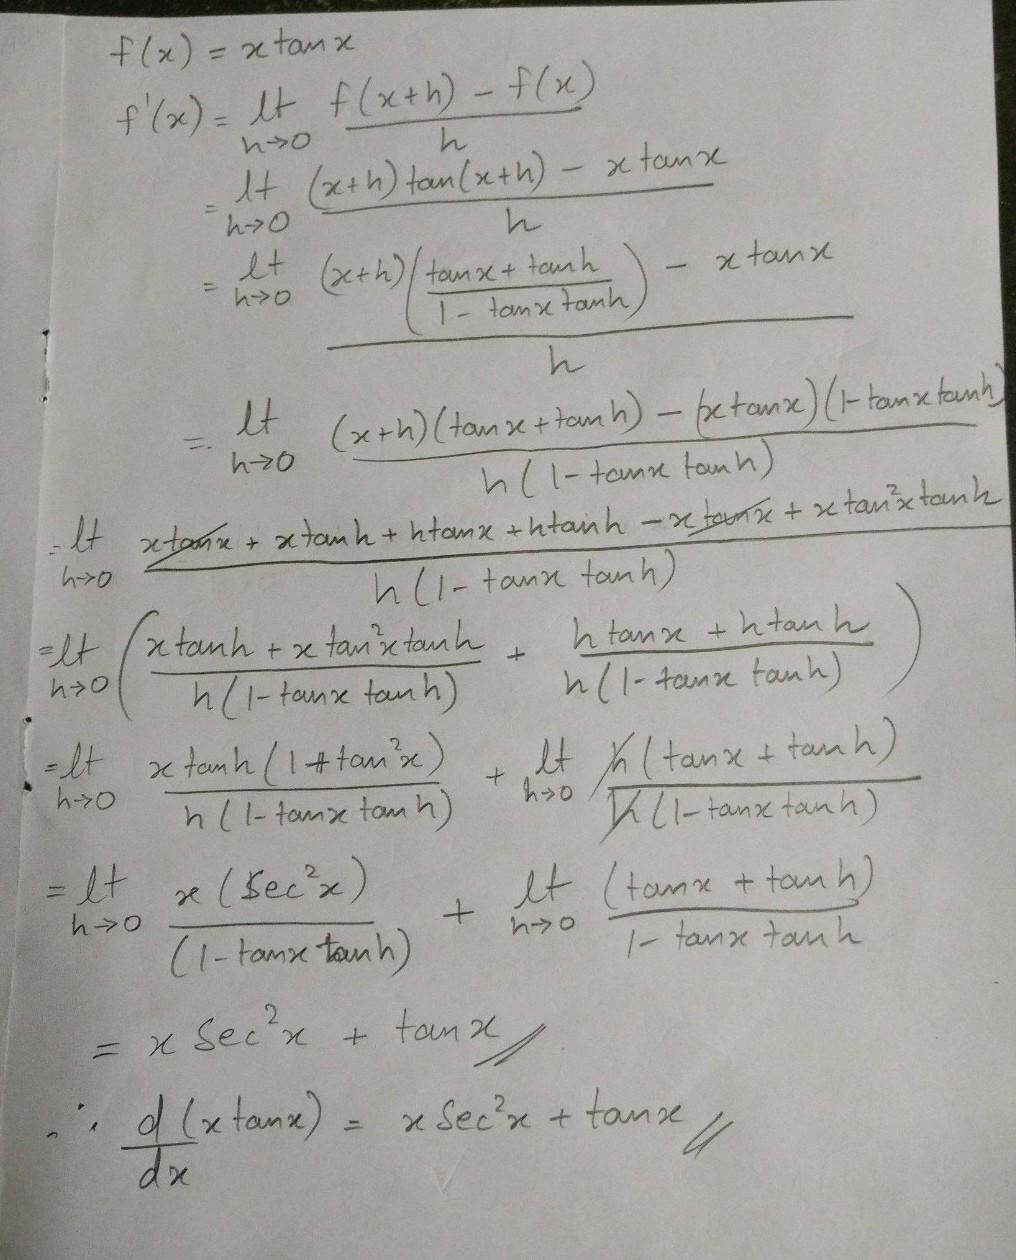 f(x) = x tan x
f'(x) = lt h→0 (f(x+h) - f(x))/h
= lt h→0 ((x+h) tan(x+h) - x tan x)/h
= lt h→0 ((x+h)((tan x + tan h)/(1 - tan x tan h)) - x tan x)/h
= lt h→0 ((x+h)(tan x + tan h) - (x tan x)(1 - tan x tan h))/(h(1 - tan x tan h))
= lt h→0 (x tan x + x tan h + h tan x + h tan h - x tan x + x tan²x tan h)/(h(1 - tan x tan h))
= lt h→0 ((x tan h + x tan²x tan h)/(h(1 - tan x tan h)) + (h tan x + h tan h)/(h(1 - tan x tan h)))
= lt h→0 (x tan h (1 + tan²x))/(h(1 - tan x tan h)) + lt h→0 (h(tan x + tan h))/(h(1 - tan x tan h))
= lt h→0 (x(Sec²x))/((1 - tan x tan h)) + lt h→0 ((tan x + tan h))/(1 - tan x tan h)
= x Sec²x + tan x //
∴ d/dx (x tan x) = x Sec²x + tan x //